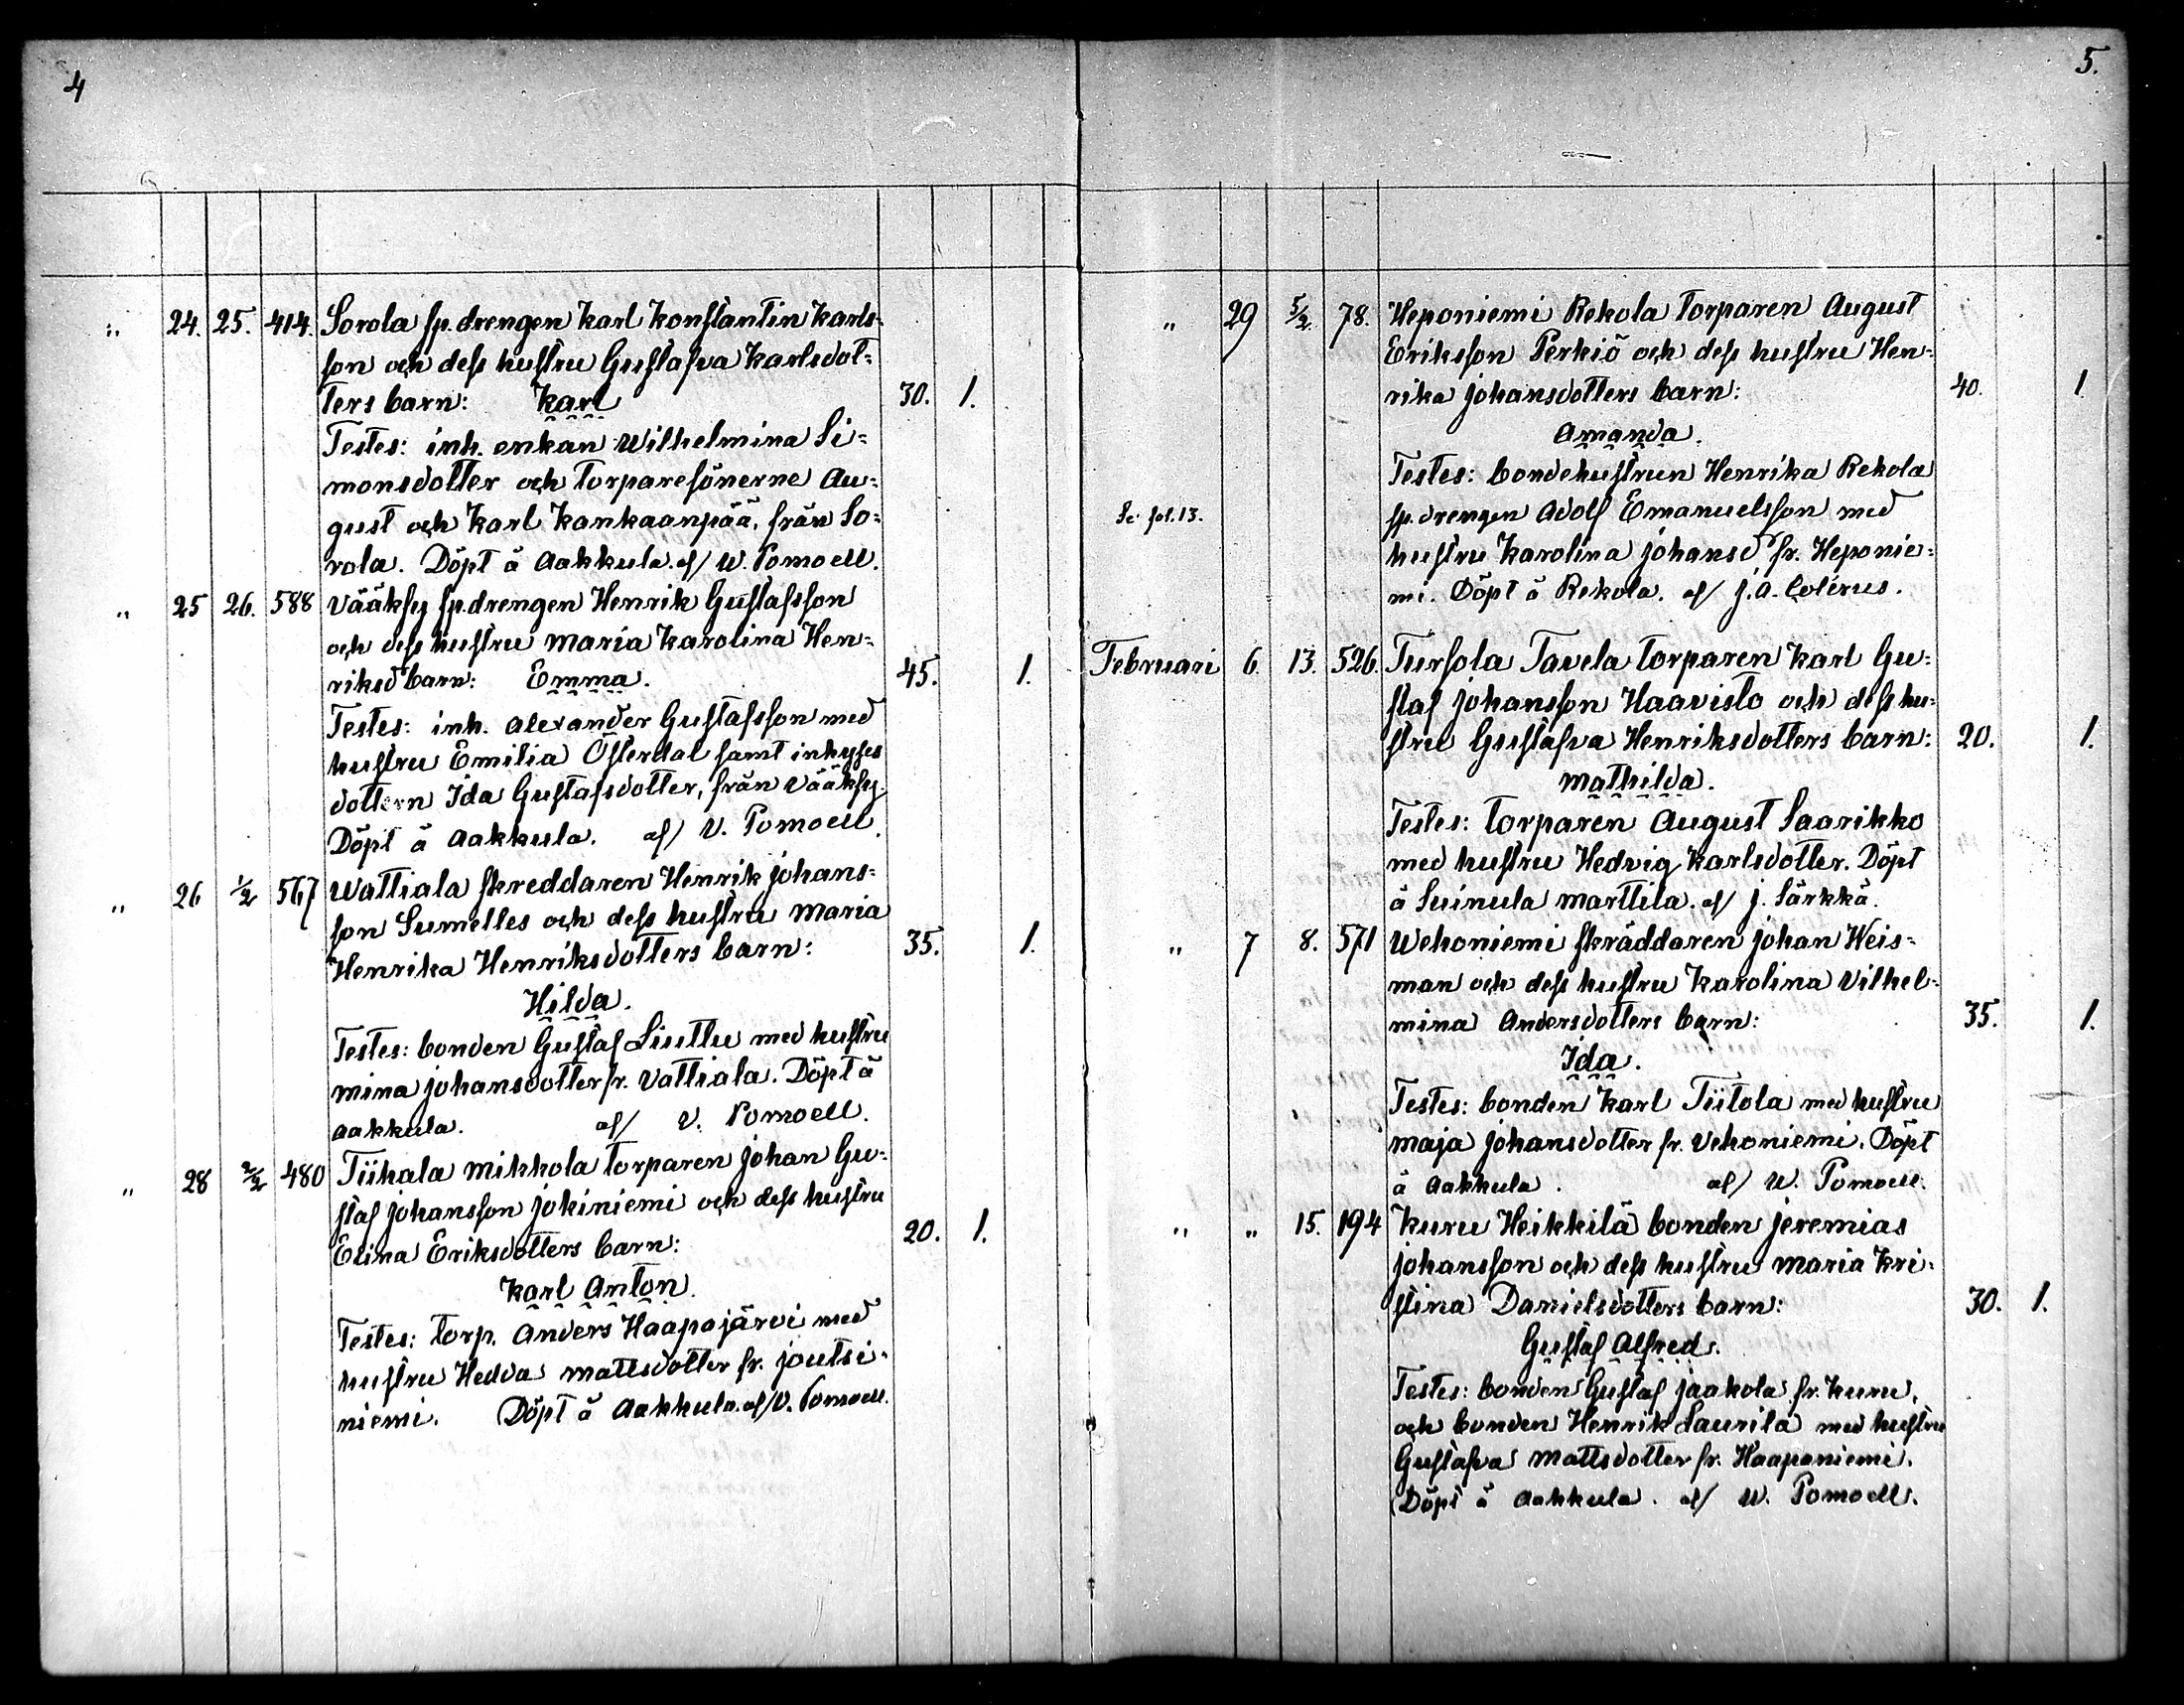 4
„ 24. 25. 414. Sorola sp.drengen Karl Konstantin Karls-
son och dess hustru Gustafva Karlsdot-
ters barn: Karl 30. 1.
Testes: inh. enkan Wilhelmina Si-
monsdotter och Torparesönerne Au-
gust och Karl Kankaanpää, från So-
rola. Döpt å Aakkula. af/ W. Pomoell.
„ 25 26. 588 Vääksy sp.drengen Henrik Gustafsson
och dess hustru Maria Karolina Hen-
riksd barn: Emma. 45. 1.
Testes: inh. Alexander Gustafsson med
hustru Emilia Österdal samt inhyses
dottern Ida Gustafsdotter, från Vääksy.
Döpt å Aakkula. af/ V. Pomoell.
„ 26 1/2 567 Wattiala skreddaren Henrik Johans-
son Sumelles och dess hustru Maria
Henrika Henriksdotters barn: 35. 1.
Hilda.
Testes: bonden Gustaf Liuttu med hustru
Mina Johansdotter fr. Vattiala. Döpt å
Aakkula. af/ V. Pomoell.
„ 28 2/2 480 Tiihala Mikkola torparen Johan Gu-
staf Johansson Jokiniemi och dess hustru
Elina Eriksdotters barn: 20. 1.
Karl Anton.
Testes: Torp. Anders Haapajärvi med
hustru Hedda Mattsdotter fr. Joutsi-
niemi. Döpt å Aakkula. af/ V. Pomoell.
5.
„ 29 5/2 78. Heponiemi Rekola torparen August
Eriksson Perkiö och dess hustru Hen-
rika Johansdotters barn: 40. 1.
Amanda.
Testes: bondehustrun Henrika Rekola
Se fol. 13. sp.drengen Adolf Emanuelsson med
hustru Karolina Johansd fr. Heponie-
mi. Döpt å Rekola. af/ J. A. Colérus.
Februari 6. 13. 526. Tursola Tavela torparen Karl Gu-
staf Johansson Haavisto och dess hu-
stru Gustafva Henriksdotters barn: 20. 1.
Mathilda.
Testes: torparen August Saarikko
med hustru Hedvig Karlsdotter. Döpt
å Suinula Marttila. af/ J. Särkkä.
„ 7 8. 571 Wehoniemi skräddaren Johan Weis-
man och dess hustru Karolina Vilhel-
mina Andersdotters barn: 35. 1.
Ida.
Testes: bonden Karl Tiitola med hustru
Maja Johansdotter fr. Vehoniemi. Döpt
å Aakkula. af/ W. Pomoell.
„ „ 15. 194 Kuru Heikkilä bonden Jeremias
Johansson och dess hustru Maria Kri-
stina Danielsdotters barn: 30. 1.
Gustaf Alfred.
Testes: bonden Gustaf Jaakola fr. Kuru,
och bonden Henrik Laurila med hustru
Gustafva Mattsdotter fr. Haapaniemi.
Döpt å Aakkula. af/ W. Pomoell.